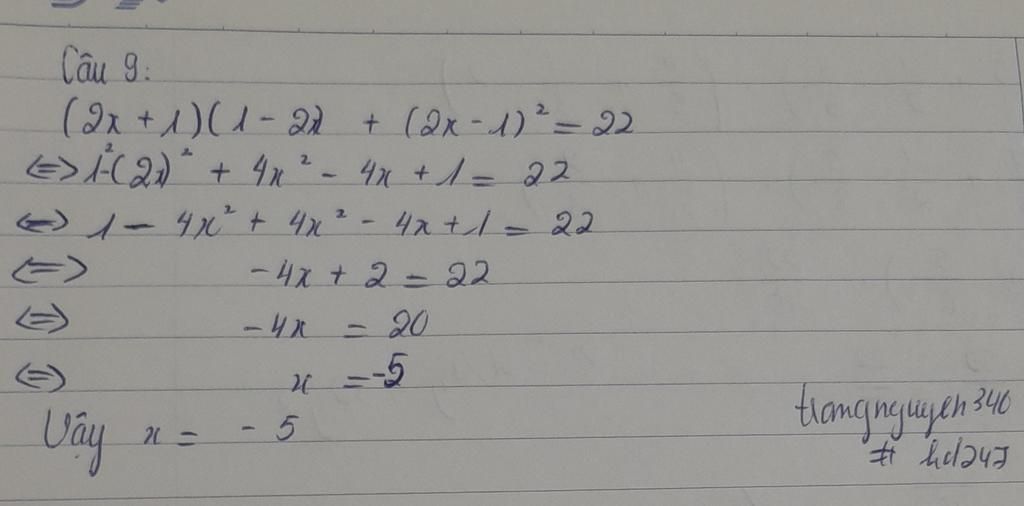 Câu 9:
(2x + 1)(1 - 2x) + (2x - 1)² = 22
<=> 1² - (2x)² + 4x² - 4x + 1 = 22
<=> 1 - 4x² + 4x² - 4x + 1 = 22
<=> -4x + 2 = 22
<=> -4x = 20
<=> x = -5
Vậy x = -5
trangnguyen340
# hd247